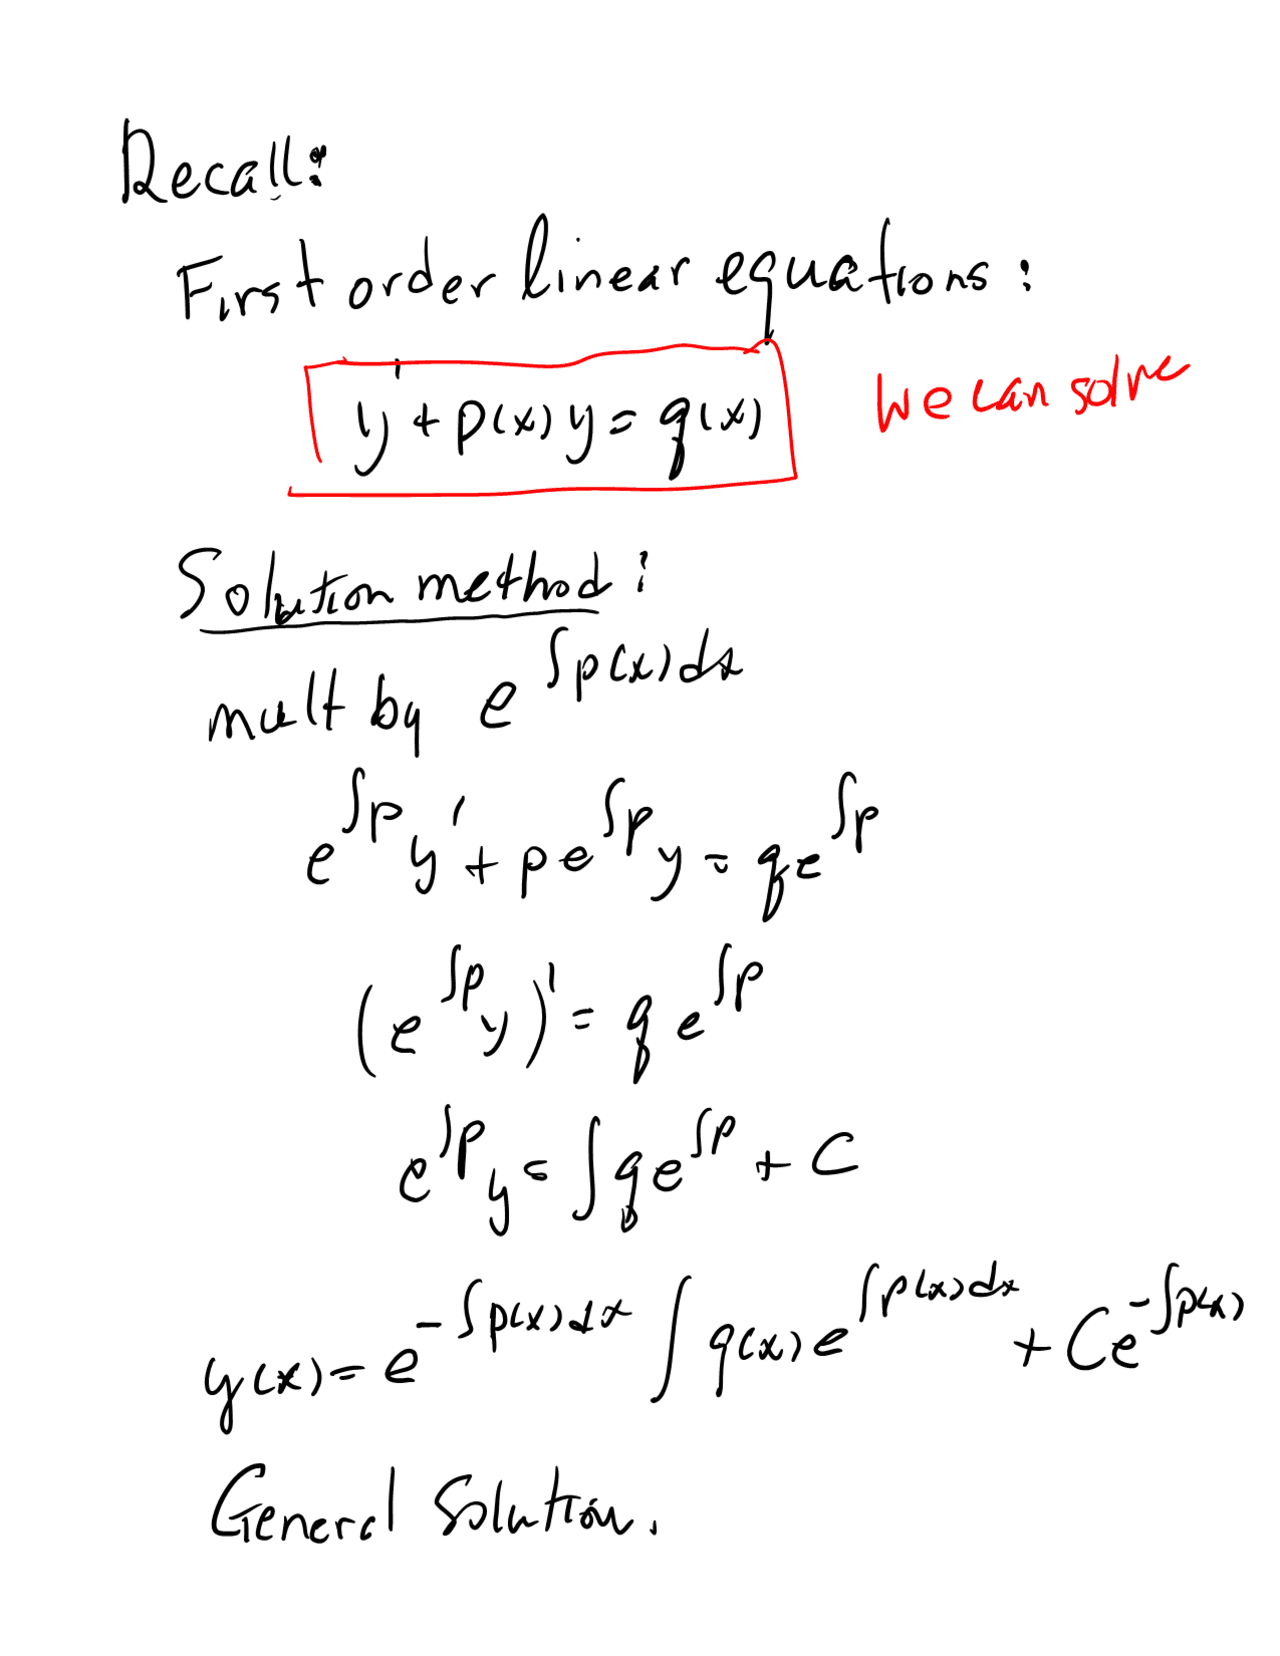 Recall:
First order linear equations:
y' + p(x)y = q(x) We can solve
Solution method:
mult by e^{∫p(x)dx}
e^{∫p} y' + p e^{∫p} y = q e^{∫p}
(e^{∫p} y)' = q e^{∫p}
e^{∫p} y = ∫ q e^{∫p} + C
y(x) = e^{-∫p(x)dx} ∫ q(x) e^{∫p(x)dx} + C e^{-∫p(x)}
General Solution.